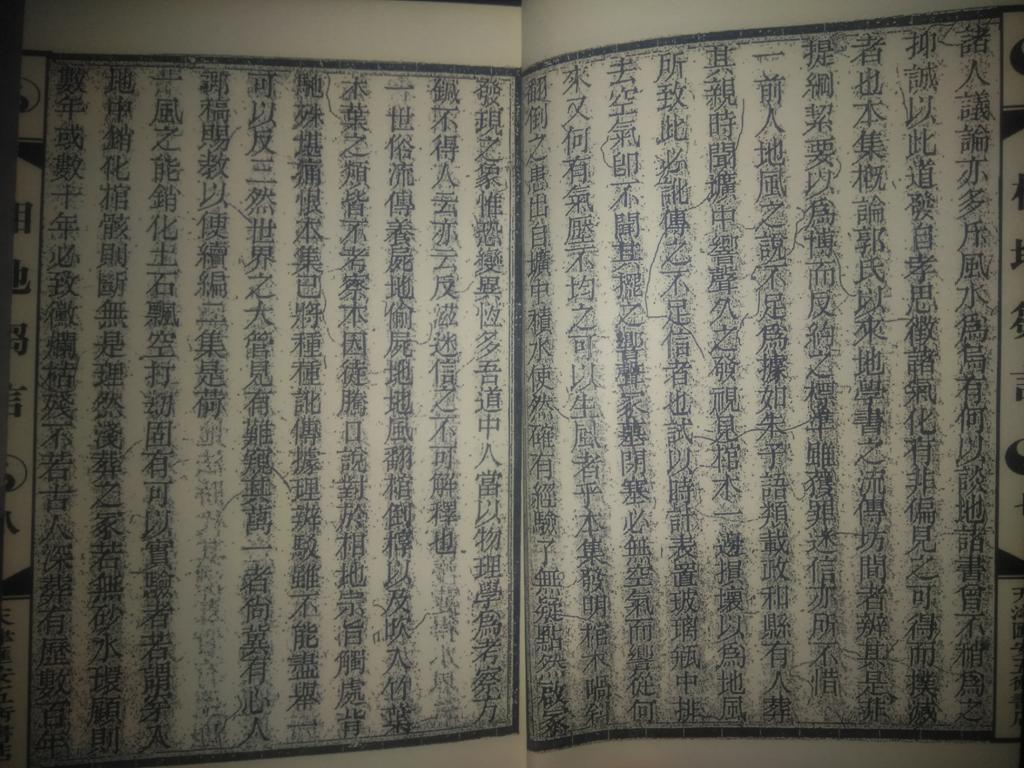 諸人議論亦多斥風水為偽有何以談地諸書曾不稍為之
抑誠以此道發自孝思徵諸氣化有非偏見之可得而撲滅
者也本集概論郭氏以來地學書之流傳坊間者辨其是非
提綱絜要以為博而反約之標準雖獲罪迷信亦所不惜
一前人地風之說不足為據如朱子語類載政和縣有人葬
其親時聞壙中響聲久之發視見棺木一邊損壞以為地風
所致此必訛傳之不足信者也試以時計表置玻璃瓶中排
去空氣即不聞其擺之響聲冢墓閉塞必無空氣而響從何
來又何有氣壓不均之可以生風者乎本集發明棺木喎斜
翻倒之患出自壙中積水使然確有經驗了無疑點然啟冢
發現之象惟恐變異恆多吾道中人當以物理學為考察方
鍼不得人云亦云反滋迷信之不可解釋也
一世俗流傳養屍地偷屍地地風翻棺倒槨以及吹入竹葉
木葉之類皆不考察不因徒騰口說對於相地宗旨觸處背
馳殊堪痛恨本集已將種種訛傳據理辨駁雖不能盡舉一
可以反三然世界之大管見有難窺其萬一者尚冀有心人
郵稿賜教以便續編二集是荷
風之能銷化土石飄空打劫固有可以實驗者若謂穿入
地中銷化棺骸則斷無是理然淺葬之家若無砂水環顧則
數年或數十年必致黴爛枯殘不若古人深葬有歷數百年
相地
八
七